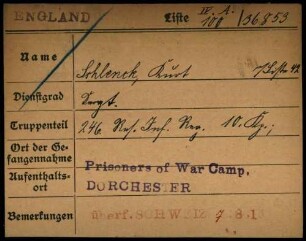 ENGLAND Liste IV. A. 100 / 36853
Name Schlenck, Kurt
Dienstgrad Sergt.
Truppenteil 246. Res. Inf. Reg. 10. Kp.;
Ort der Gefangennahme
Aufenthaltsort Prisoners of War Camp, DORCHESTER
Bemerkungen überf. SCHWEIZ 9.8.1